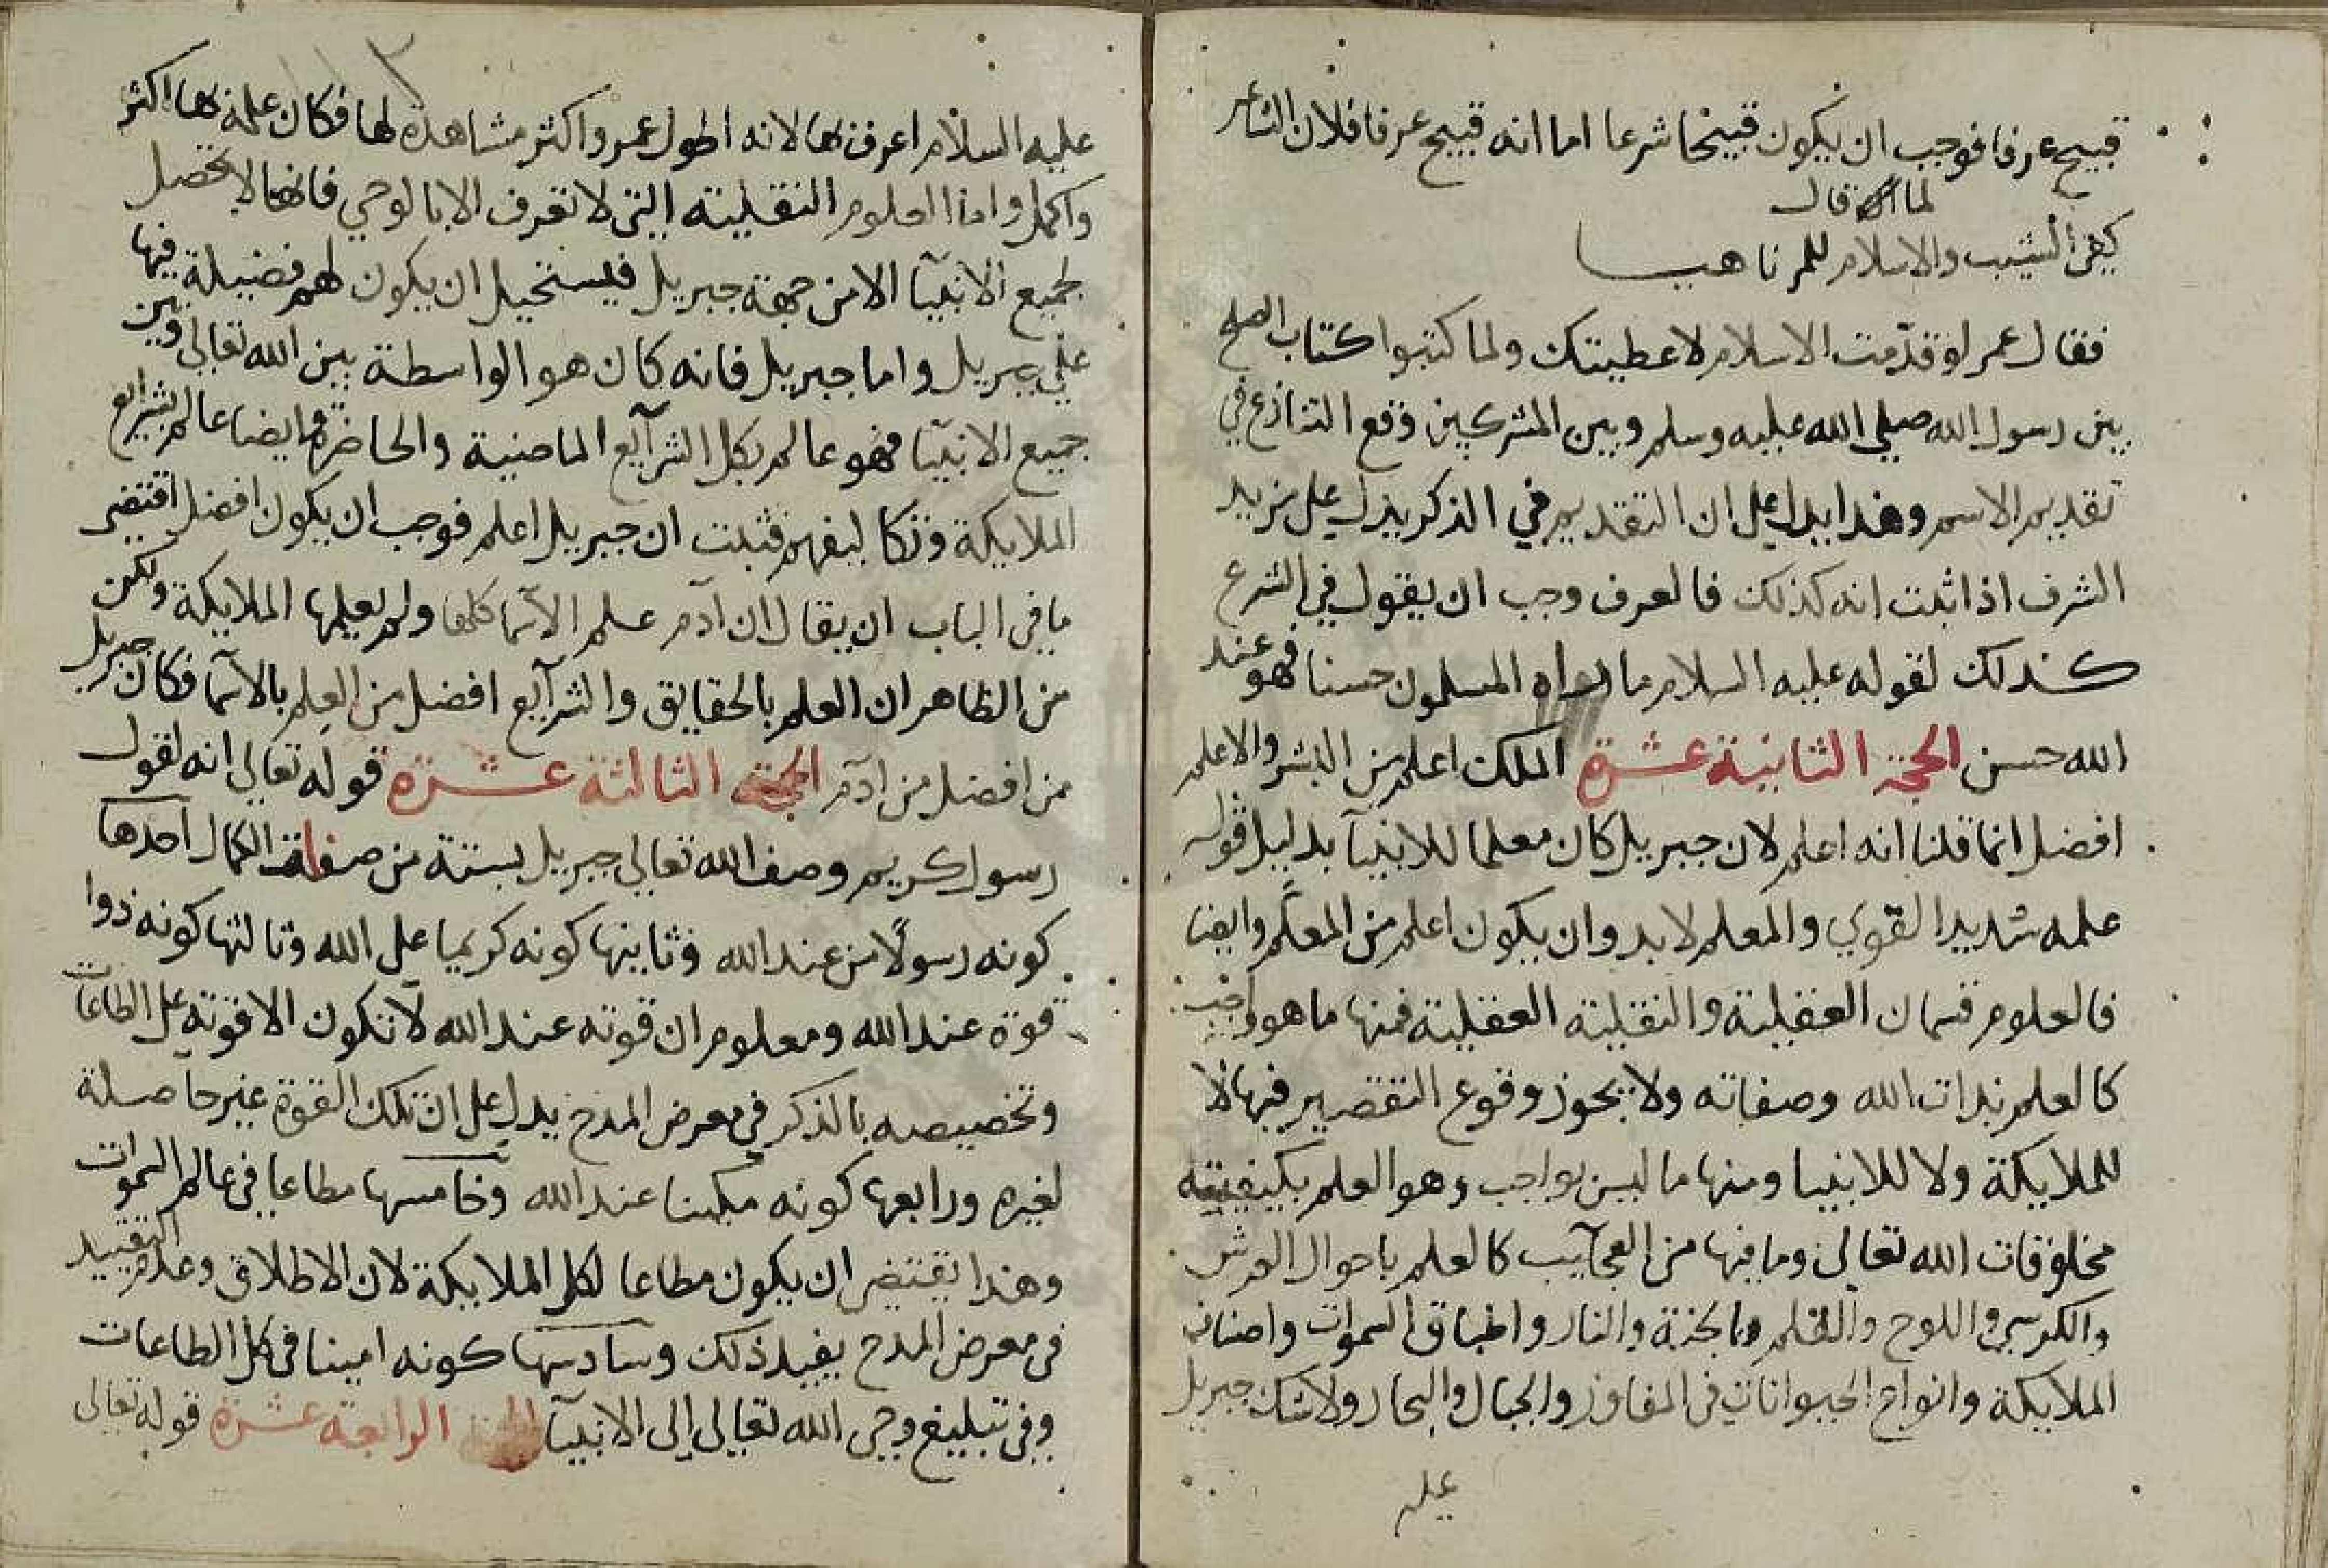 قبيح عرفا فوجب ان يكون قبيحا شرعا اما انه قبيح عرفا فلان الشاعر
لما قال
كفى الشيب والاسلام للمرناهيا
فقال عمر لو قدمت الاسلام لاعطيتك ولما كتبوا كتاب الصلح
بين رسول الله صلي الله عليه وسلم وبين المشركين وقع التنازع في
تقديم الاسم وهذا يدل علي ان التقديم في الذكر يدل علي مزيد
الشرف اذا ثبت انه كذلك فالعرف وجب ان يقول في الشرع
كذلك لقوله عليه السلام ما راه المسلمون حسنا فهو عند
الله حسن الحجة الثانية عشرة الملك اعلم من البشر والاعلم
افضل انما قلنا انه اعلم لان جبريل كان معلما للانبيآ بدليل قوله
علمه شديد القوي والمعلم لا بد وان يكون اعلم من المعلم وايضا
فالعلوم قسمان العقلية والنقلية العقلية فمنها ما هو واجب
كالعلم بذات الله وصفاته ولا يجوز وقوع التقصير فيها لا
للملايكة ولا للانبيا ومنها ما ليس بواجب وهو العلم بكيفية
مخلوقات الله تعالى وما فيها من العجآيب كالعلم باحوال العرش
والكرسي واللوح والقلم والجنة والنار واطباق السموات واصناف
الملايكة وانواع الحيوانات في المفاوز والجبال والبحار ولا شك جبريل
عليه
عليه السلام اعرف بها لانه اطول عمر واكثر مشاهدة لها فكان علمه بها اكثر
واكمل واما العلوم النقلية التي لا تعرف الا بالوحي فانها لا تحصل
لجميع الانبيآ الا من جهة جبريل فيستحيل ان يكون لهم فضيلة فيها
علي جبريل واما جبريل فانه كان هو الواسطة بين الله تعالى وبين
جميع الانبيآ فهو عالم بكل الشرآيع الماضية والحاضرة وايضا عالم بشرايع
الملايكة وتكاليفهم فثبت ان جبريل اعلم فوجب ان يكون افضل اقتضى
ما في الباب ان يقال ان آدم علم الآسما كلها ولم يعلمها الملايكة ولكن
من الظاهر ان العلم بالحقايق والشرآيع افضل من العلم بالآسما فكان جبريل
من افضل من ادم الحجة الثالثة عشرة قوله تعالى انه لقول
رسول كريم وصف الله تعالى جبريل بستة من صفات الكمال احدها
كونه رسولا من عند الله وثانيها كونه كريما علي الله وثالثها كونه ذوا
قوة عند الله ومعلوم ان قوته عند الله لا تكون الا قوته علي الطاعات
وتخصيصه بالذكر في معرض المدح يدل علي ان تلك القوة غير حاصلة
لغيره ورابعها كونه مكينا عند الله وخامسها مطاعا في عالم السموات
وهذا يقتضي ان يكون مطاعا لكل الملايكة لان الاطلاق وعدم التقييد
في معرض المدح يفيد ذلك وسادسها كونه امينا في كل الطاعات
وفي تبليغ وحي الله تعالى الى الانبيآ الحجة الرابعة عشرة قوله تعالى